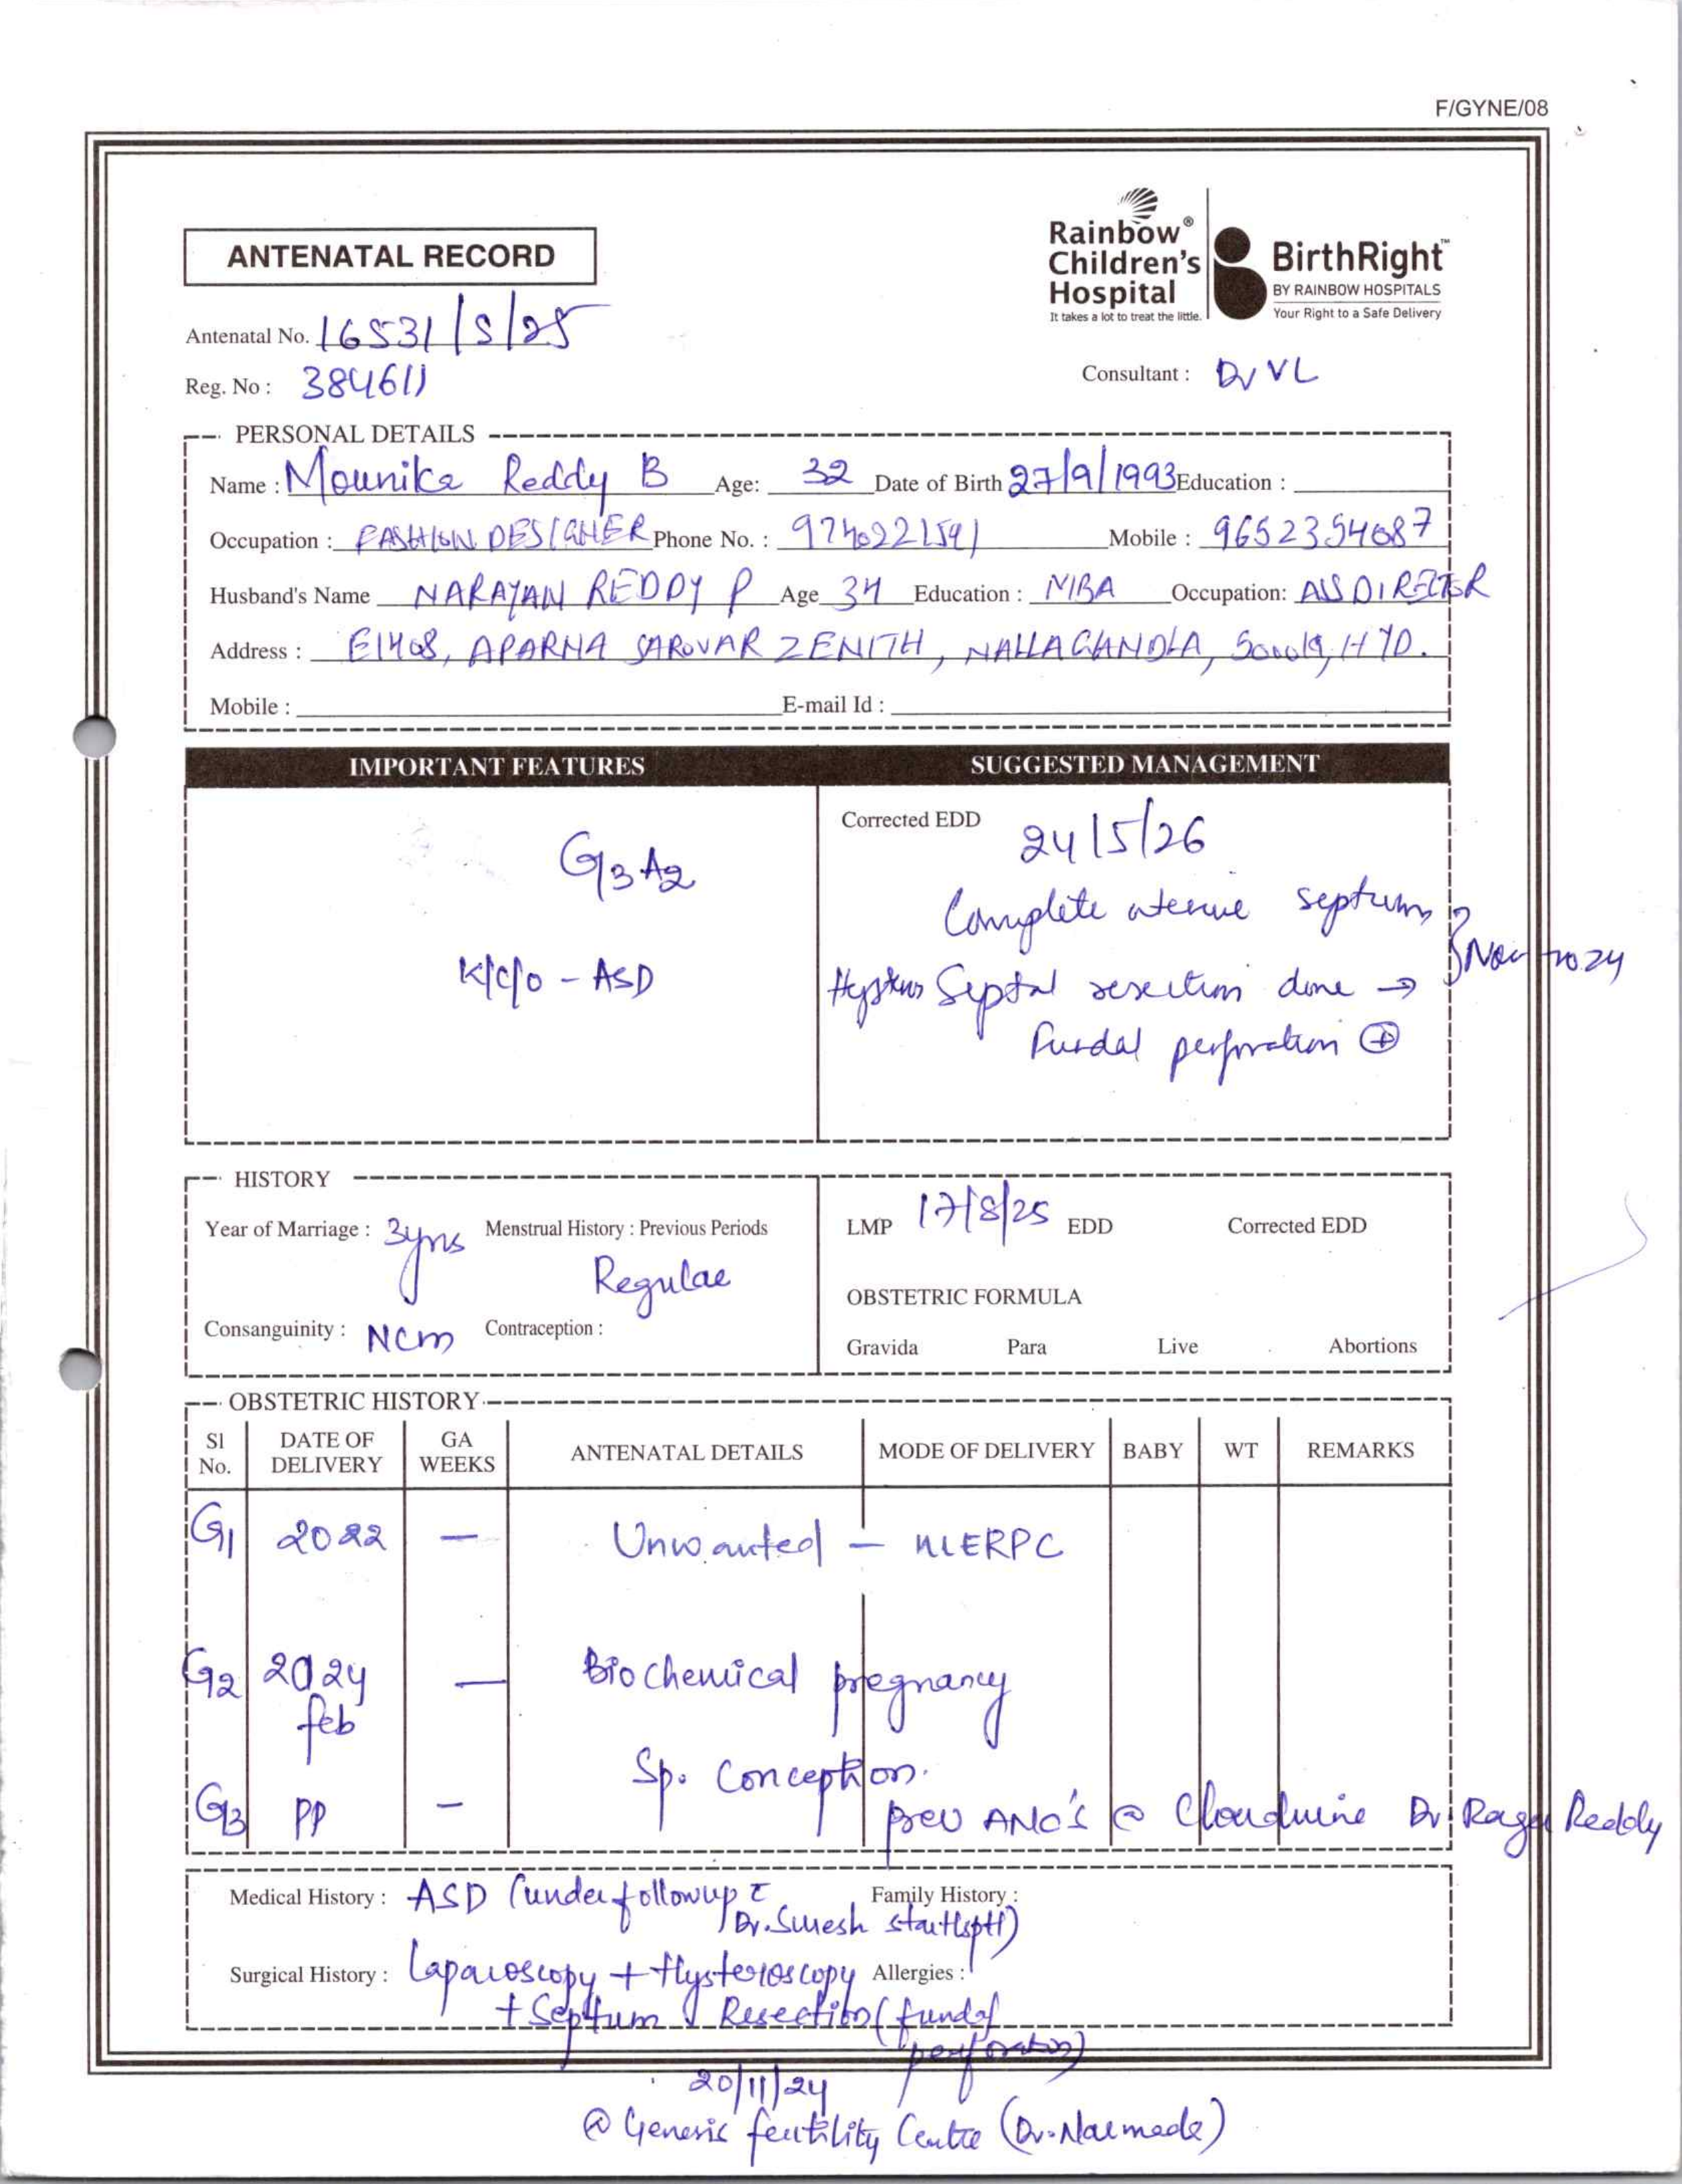 F/GYNE/08
ANTENATAL RECORD
Rainbow®
Children's
Hospital
It takes a lot to treat the little.
BirthRight™
BY RAINBOW HOSPITALS
Your Right to a Safe Delivery
Antenatal No. 16531/S/25
Reg. No : 384611
Consultant : Dr VL
PERSONAL DETAILS
Name : Mounika Reddy B Age: 32 Date of Birth 27/9/1993 Education :
Occupation : FASHION DESIGNER Phone No. : 9740221591 Mobile : 9652354087
Husband's Name NARAYAN REDDY P Age 34 Education : MBA Occupation: ASS DIRECTOR
Address : E1408, APARNA SAROVAR ZENITH, NALLAGANDLA, 500019, HYD.
Mobile : E-mail Id :
IMPORTANT FEATURES SUGGESTED MANAGEMENT
G3A2
K/C/O - ASD
Corrected EDD 24/5/26
Complete uterine septum
Nov 2024
Septal resection done →
Fundal perforation ⊕
HISTORY
Year of Marriage : 3yrs Menstrual History : Previous Periods
Regular
Consanguinity : NCM Contraception :
LMP 17/8/25 EDD Corrected EDD
OBSTETRIC FORMULA
Gravida Para Live Abortions
OBSTETRIC HISTORY
Sl No. DATE OF DELIVERY GA WEEKS ANTENATAL DETAILS MODE OF DELIVERY BABY WT REMARKS
G1 2022 — Unwanted — ERPC
G2 2024 feb — Biochemical pregnancy
Sp. Conception.
G3 PP - prev ANC's @ Cloudnine Dr. Raga Reddy
Medical History : ASD (under followup c̄
Dr. Suresh
Family History :
Surgical History : Laparoscopy + Hysteroscopy
+ Septum Resection (fundal
perforation)
Allergies :
20/11/24
@ Genesis fertility Centre (Dr. Narmada)